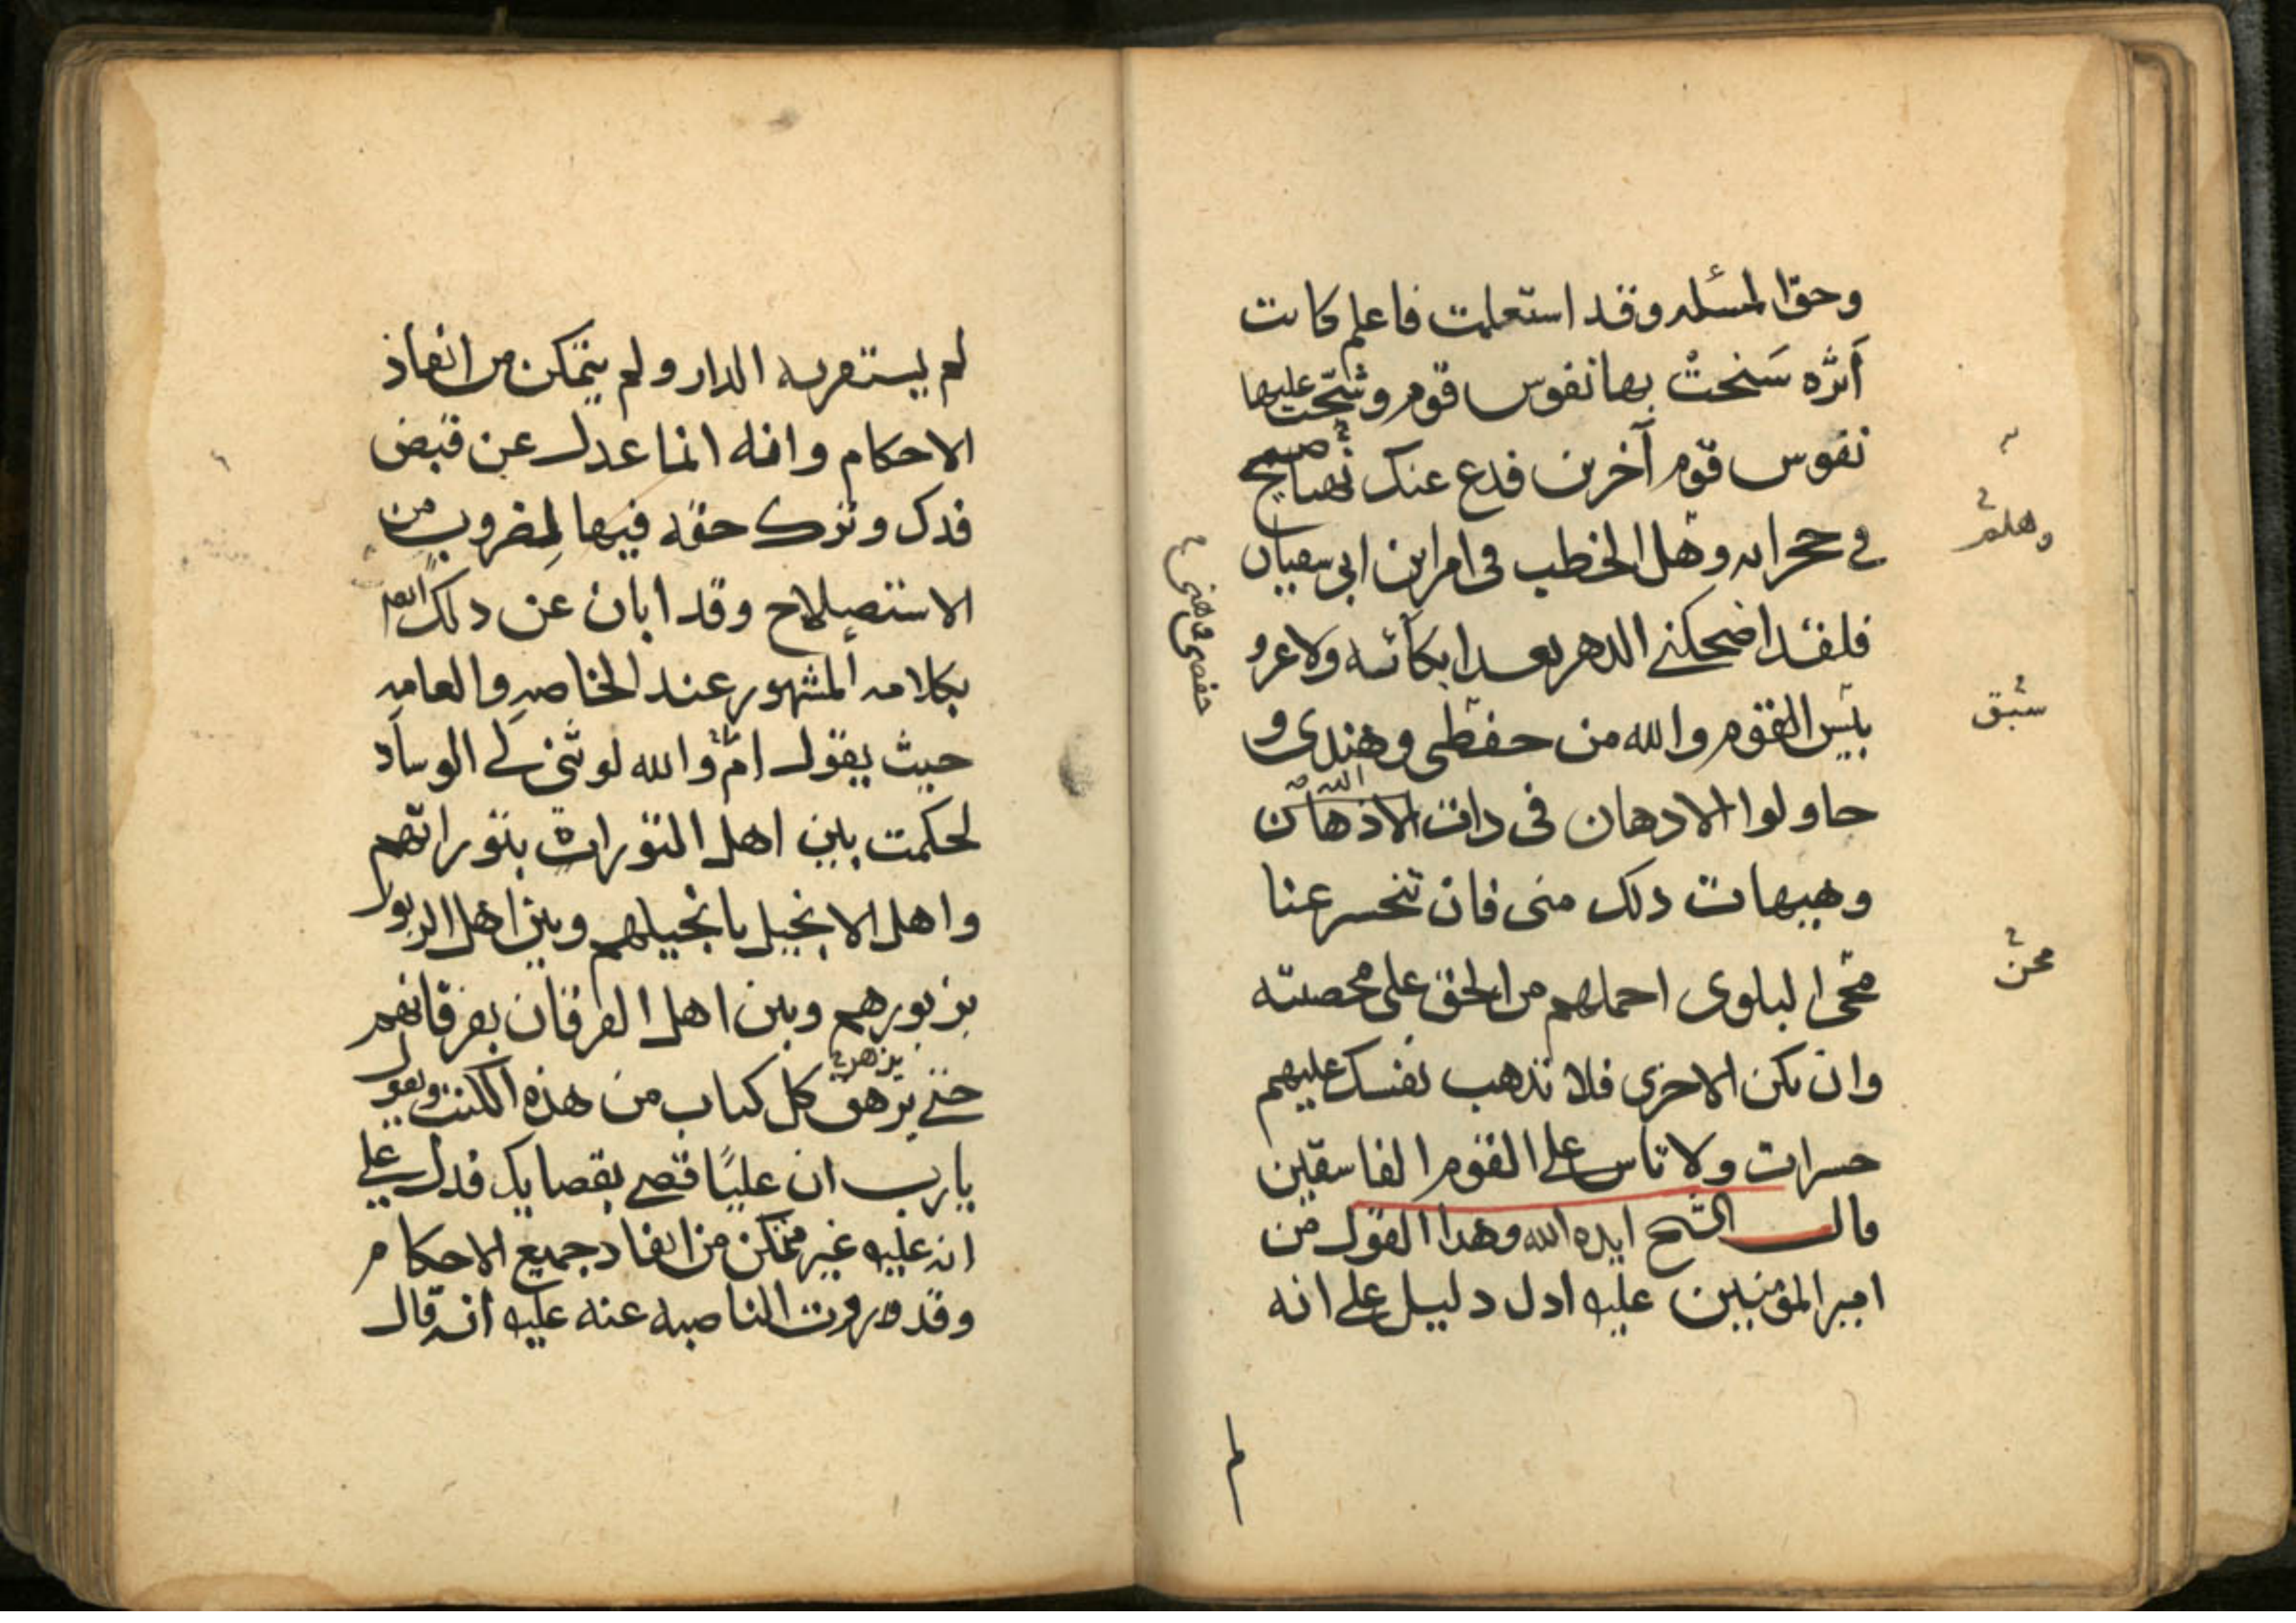 وحق المسئله وقد استعلمت فاعلم كانت
أثره سَنحتْ بها نفوس قوم وشحّت عليها
نفوس قوم آخرين فدع عنك نهبا صيح
في حجراته وهل الخطب فى امر ابن ابى سفيان
فلقد اضحكنى الدهر بعد ابكائه ولا غرو
بئس القوم والله من حفظى وهندى و
حاولوا الادهان فى دات الاذهان
وهيهات دلك منى فان تنحسر عنا
محن البلوى احملهم من الحق على محصته
وان تكن الاخرى فلا تذهب نفسك عليهم
حسرات ولا تاس على القوم الفاسقين
قال الشيخ ايده الله وهدا القول من
امير المؤمنين عليه ادل دليل على انه
وهلم
سبق
محن
حفضى وهنى
لم
لم يستقر به الدار ولم يتمكن من انفاذ
الاحكام وانه انما عدل عن قبض
فدك وترك حقه فيها لضروب من
الاستصلاح وقد ابان عن دلك ايضا
بكلامه المشهور عند الخاصه والعامه
حيث يقول ام والله لو ثنى لى الوساد
لحكمت بين اهل التورات بتوراتهم
واهل الانجيل بانجيلهم وبين اهل الزبور
بزبورهم وبين اهل الفرقان بفرقانهم
حتى يزهق كل كتاب من هذه الكتب ويقول
يزهر
يا رب ان عليًا قضى بقضايك فدل على
انه عليه غير متمكن من انفاد جميع الاحكام
وقد روت الناصبه عنه عليه انه قال